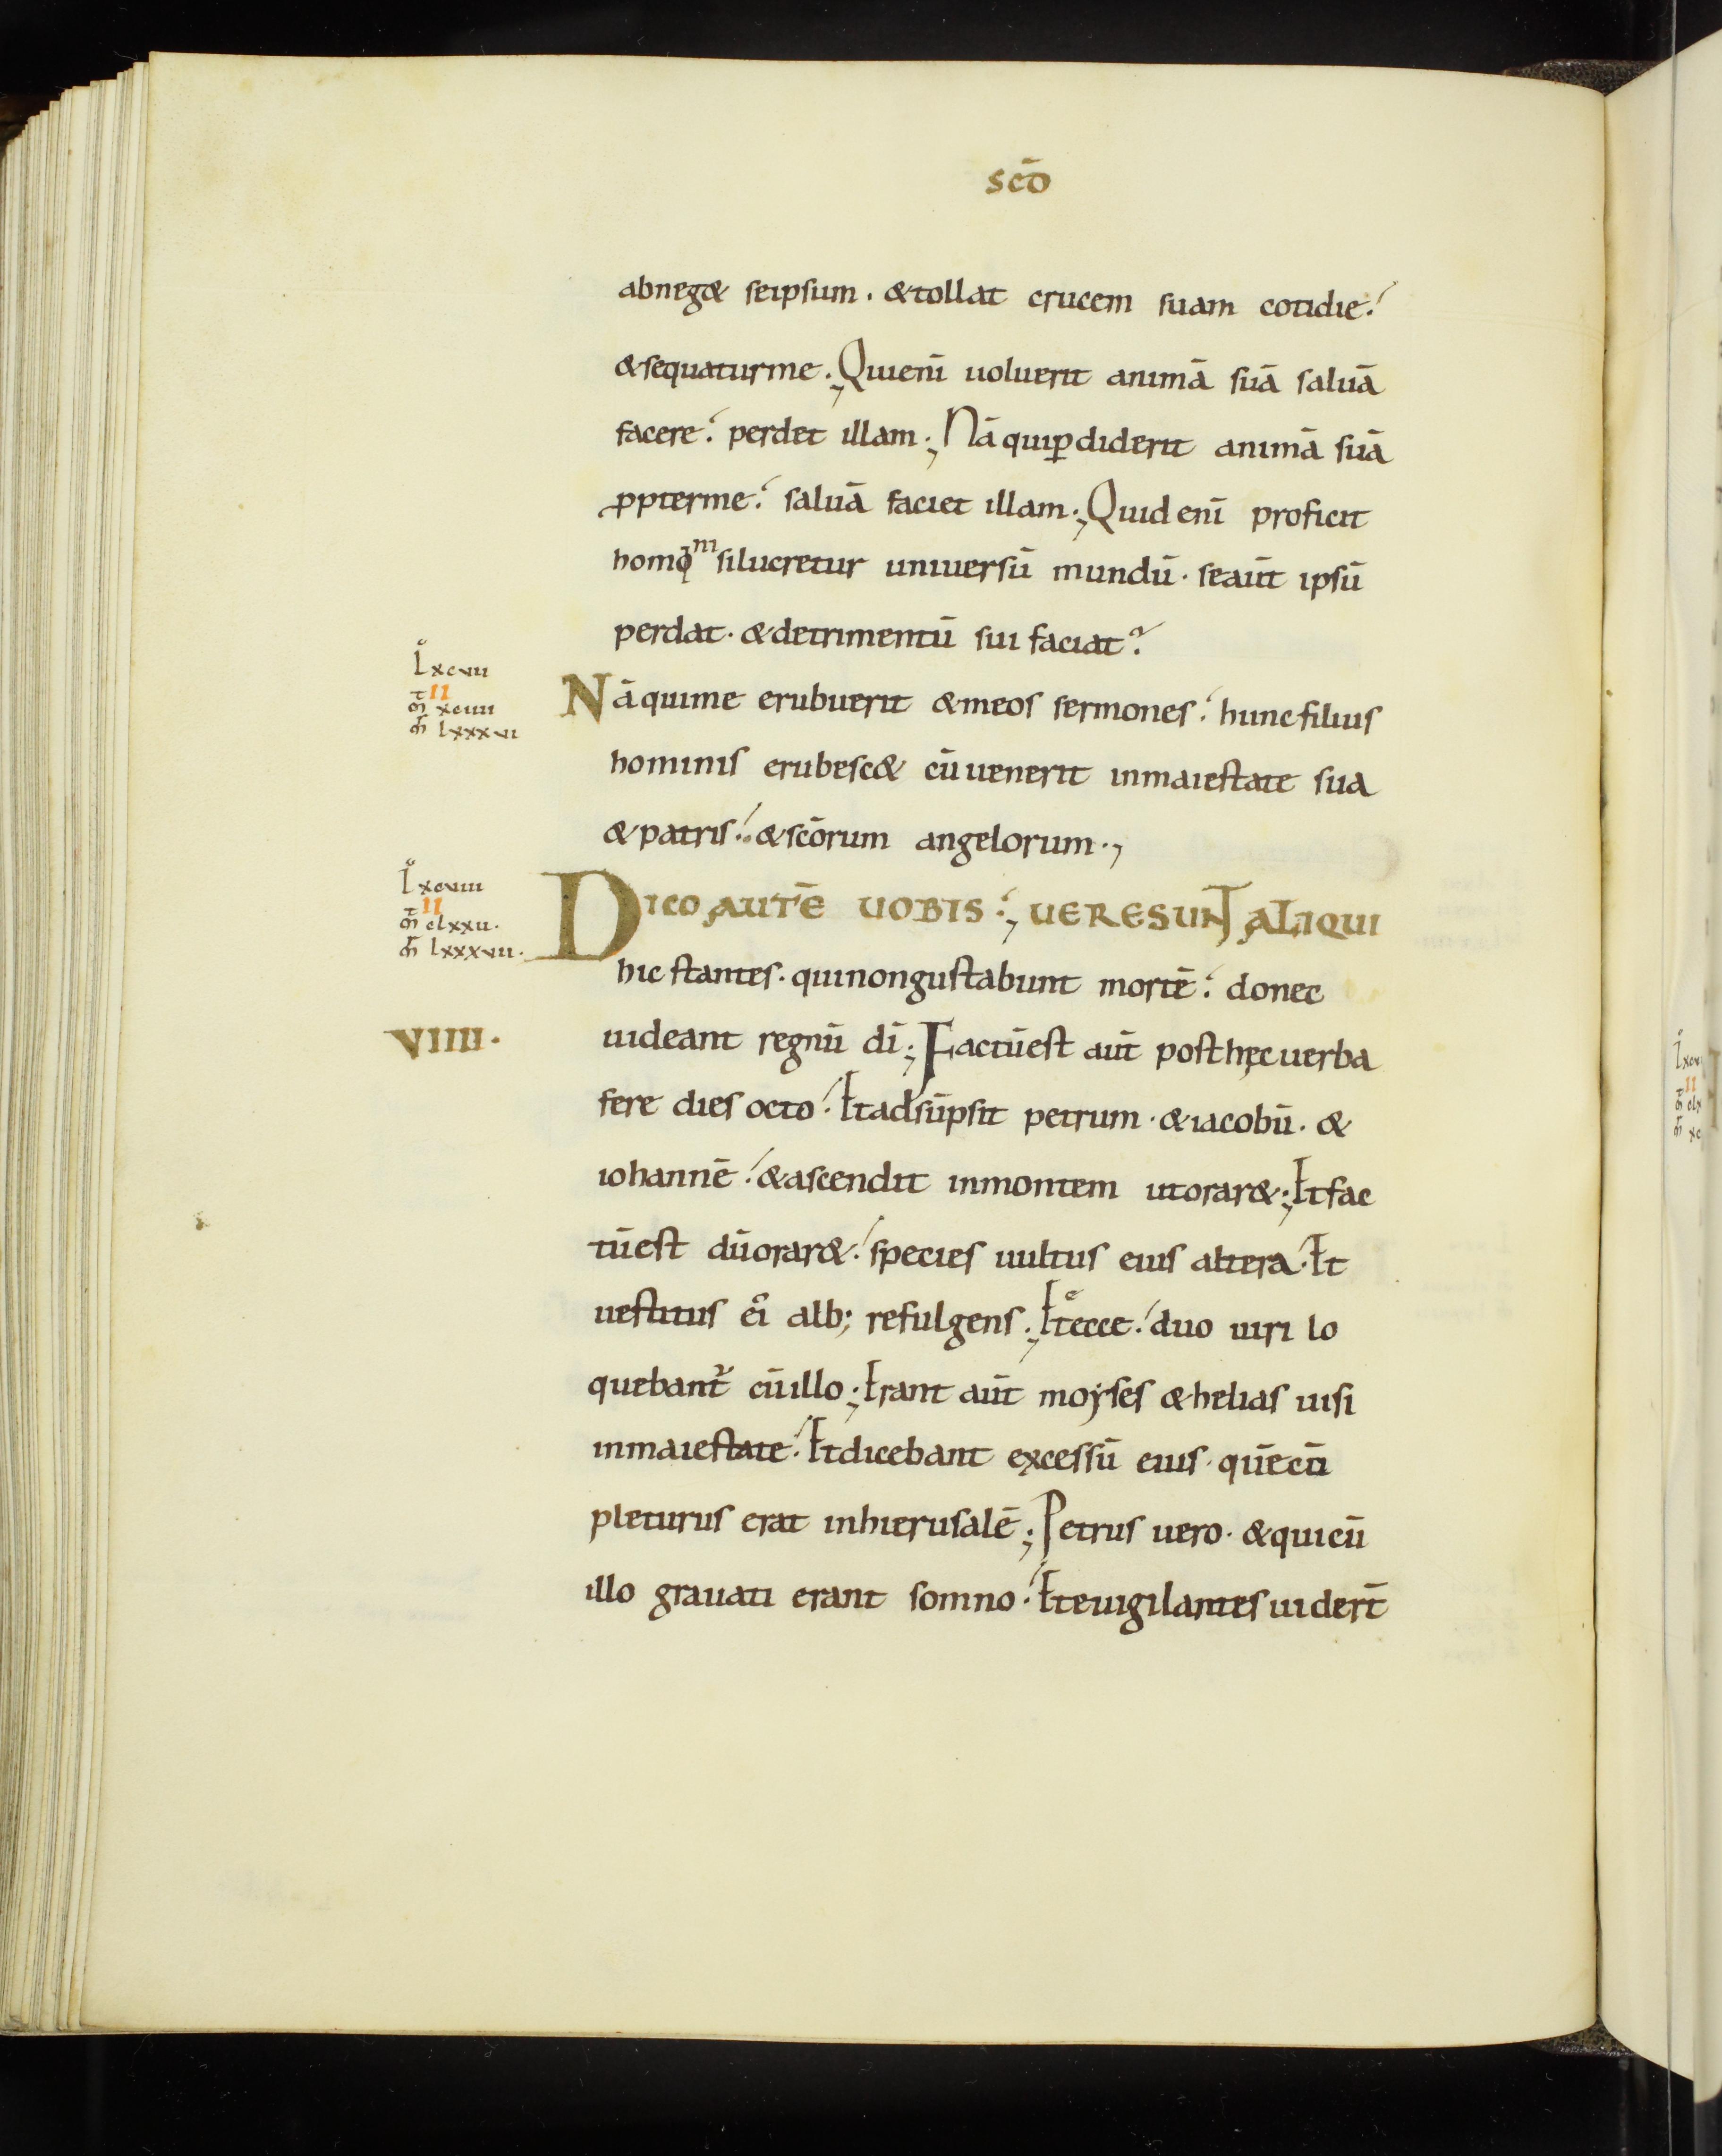 scō
abneg& seipsum. &tollat crucem suam cotidie.
&sequaturme.; Quienī uoluerit animā suā saluā
facere. perdet illam.; Nā quiꝑdiderit animā suā
ꝓpterme. saluā faciet illam.; Quid enī proficit
homo silucretur uniuersū mundū. seaūt ipsū
perdat. &detrimentū sui faciat?
lxcvii
II
xciiii
lxxxvi
Nā quime erubuerit &meos sermones. huncfilius
hominis erubesc& cūuenerit inmaiestate sua
&patris. &scōrum angelorum.,
lxcviii
II
clxxii.
lxxxvii.
DICO AUTĒ UOBIS.; UERESUNT ALIQUI
hic stantes. quinongustabunt mortē. donec
VIIII.
uideant regnū dī.; Factūest aūt posthęcuerba
fere dies octo. Etadsūpsit petrum. &iacobū. &
iohannē. &ascendit inmontem utorar&.; Etfac
tūest dūorar&. species uultus eius altera. Et
uestitus ei alb; refulgens.; Etecce. duo uiri lo
quebant cūillo.; Erant aūt moyses &helias uisi
inmaiestate. Etdicebant excessū eius. quēcō
pleturus erat inhierusalē.; Petrus uero. &quicū
illo grauati erant somno. Eteuigilantes uidert̄